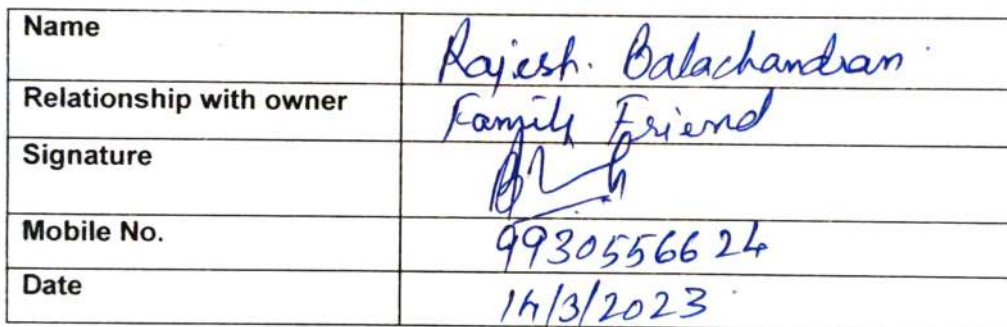 Name Rajesh. Balachandran
Relationship with owner Family Friend
Signature
Mobile No. 9930556624
Date 14/3/2023